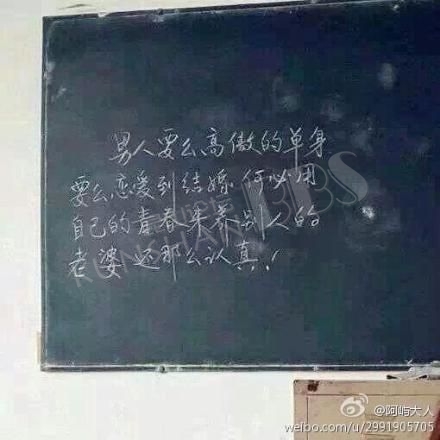 男人要么高傲的单身
要么恋爱到结婚 何必用
自己的青春来养别人的
老婆 还那么认真！
BBS
@阿屿大人
weibo.com/u/2991905705